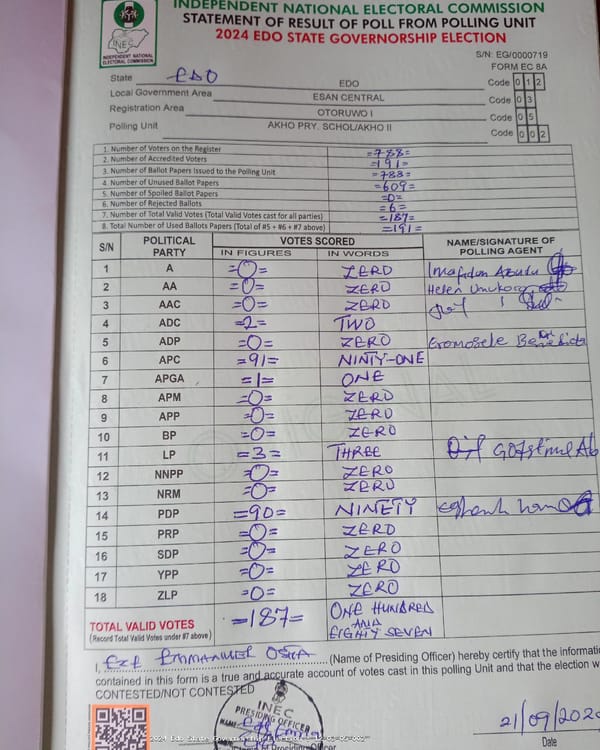 INDEPENDENT NATIONAL ELECTORAL COMMISSION
STATEMENT OF RESULT OF POLL FROM POLLING UNIT
2024 EDO STATE GOVERNORSHIP ELECTION
INEC
INDEPENDENT NATIONAL
ELECTORAL COMMISSION
S/N: EG/0000719
FORM EC 8A
State EDO EDO Code 0 1 2
Local Government Area ESAN CENTRAL Code 0 3
Registration Area OTORUWO I Code 0 5
Polling Unit AKHO PRY. SCHOL/AKHO II Code 0 0 2
1. Number of Voters on the Register =788=
2. Number of Accredited Voters =191=
3. Number of Ballot Papers Issued to the Polling Unit =788=
4. Number of Unused Ballot Papers =609=
5. Number of Spoiled Ballot Papers =0=
6. Number of Rejected Ballots =6=
7. Number of Total Valid Votes (Total Valid Votes cast for all parties) =187=
8. Total Number of Used Ballots Papers (Total of #5 + #6 + #7 above) =191=
S/N POLITICAL PARTY VOTES SCORED NAME/SIGNATURE OF POLLING AGENT
IN FIGURES IN WORDS
1 A =0= ZERO
2 AA =0= ZERO Helen
3 AAC =0= ZERO
4 ADC =2= TWO
5 ADP =0= ZERO Eromosele
6 APC =91= NINTY-ONE
7 APGA =1= ONE
8 APM =0= ZERO
9 APP =0= ZERO
10 BP =0= ZERO
11 LP =3= THREE
12 NNPP =0= ZERO
13 NRM =0= ZERO
14 PDP =90= NINETY
15 PRP =0= ZERO
16 SDP =0= ZERO
17 YPP =0= ZERO
18 ZLP =0= ZERO
TOTAL VALID VOTES =187= ONE HUNDRED
AND
EIGHTY SEVEN
(Record Total Valid Votes under #7 above)
I, EMMANUEL (Name of Presiding Officer) hereby certify that the informati
contained in this form is a true and accurate account of votes cast in this polling Unit and that the election w
CONTESTED/NOT CONTESTED
INEC
PRESIDING OFFICER
NAME
21/09/202
Date